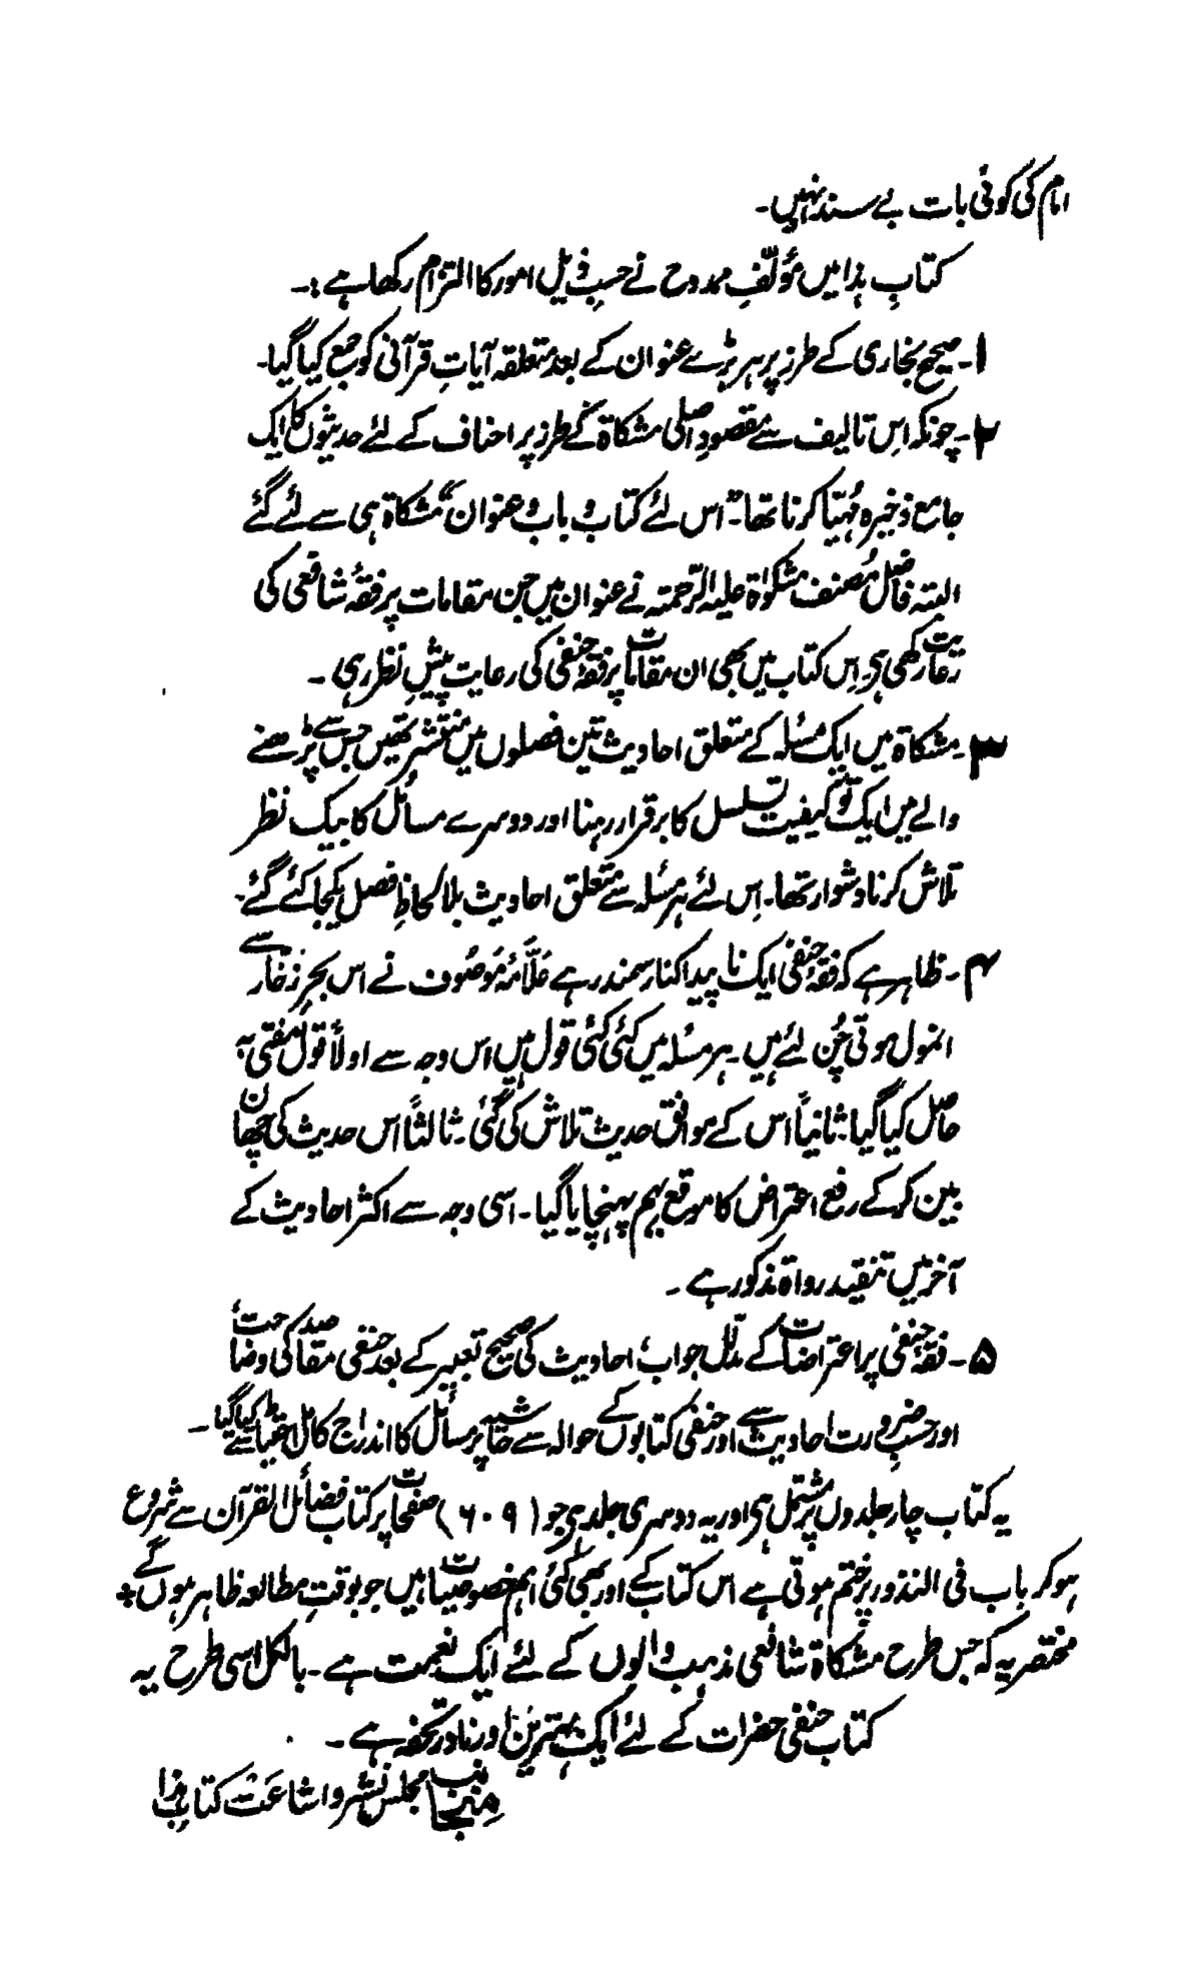 امام کی کوئی بات بے سند نہیں۔
کتابِ ہذا میں مؤلّفِ ممدوح نے حسبِ ذیل امور کا التزام رکھا ہے :۔
۱۔ صحیح بخاری کے طرز پر ہر بڑے عنوان کے بعد متعلقہ آیاتِ قرآنی کو جمع کیا گیا۔
۲۔ چونکہ اِس تالیف سے مقصودِ اصلی مشکاۃ کے طرز پر احناف کے لئے حدیثوں کا ایک
جامع ذخیرہ مُہیّا کرنا تھا۔ اس لئے کتاب و باب و عنوان مشکاۃ ہی سے لئے گئے
البتہ فاضل مُصنف مشکوٰۃ علیہ الرّحمتہ نے عنوان میں جن مقامات پر فقۂ شافعی کی
رعایت رکھی ہے اِس کتاب میں بھی ان مقامات پر فقۂ حنفی کی رعایت پیشِ نظر رہی ۔
۳۔ مشکاۃ میں ایک مسئلہ کے متعلق احادیث تین فصلوں میں منتشر تھیں جس سے پڑھنے
والے میں ایک تو کیفیت تسلسل کا برقرار رہنا اور دوسرے مسائل کا بیک نظر
تلاش کرنا دشوار تھا۔ اِس لئے ہر مسئلہ سے متعلق احادیث بلا لحاظِ فصل یکجا کئے گئے۔
۴۔ ظاہر ہے کہ فقہ حنفی ایک نا پیدا کنار سمندر ہے عَلّامۂ مَوصُوف نے اس بحرِ زخار سے
انمول موتی چُن لئے ہیں ۔ ہر مسئلہ میں کئی کئی قول ہیں اس وجہ سے اولاً قول مفتیٰ بہ
حاصل کیا گیا۔ ثانیاً اس کے موافق حدیث تلاش کی گئی ۔ ثالثاً اس حدیث کی چھان
بین کر کے رفع اعتراض کا موقع بہم پہنچایا گیا ۔ اسی وجہ سے اکثر احادیث کے
آخر میں تنقید رواۃ مذکور ہے ۔
۵۔ فقہ حنفی پر اعتراضات کے مدلّل جواب، احادیث کی صحیح تعبیر کے بعد حنفی مقصد کی وضاحت
اور حسبِ ضرورت احادیث سے اور حنفی کتابوں کے حوالہ سے حاشیہ پر مسائل کا اندراج کامل احتیاط سے کیا گیا ۔
یہ کتاب چار جلدوں پر مشتمل ہے اور یہ دوسری جلد ہے جو (۶۰۹) صفحات پر کتاب فضائل القرآن سے شروع
ہو کر باب فی النذور پر ختم ہوتی ہے اس کتاب کے اور بھی کئی اہم خصوصیات ہیں جو بوقتِ مطالعہ ظاہر ہوں گے ؞
مختصر یہ کہ جس طرح مشکاۃ شافعی مذہب والوں کے لئے ایک نعمت ہے ۔ بالکل اسی طرح یہ
کتاب حنفی حضرات کے لئے ایک بہترین اور نادر تحفہ ہے ۔
منجانب مجلس نشر و اشاعت کتاب ہذا